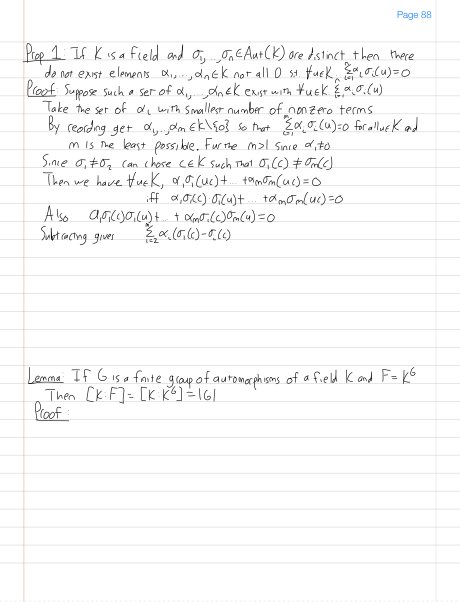 Page 88
Prop 1: If K is a field and σ₁,...,σₙ∈Aut(K) are distinct then there
do not exist elements α₁,...,αₙ∈K not all 0 st. ∀u∈K, Σⁿᵢ₌₁ αᵢσᵢ(u)=0
Proof: Suppose such a set of α₁,...,αₙ∈K exist with ∀u∈K Σⁿᵢ₌₁ αᵢσᵢ(u)
Take the set of αᵢ with smallest number of nonzero terms
By reording get α₁,...,αₘ∈K\{0} so that Σᵐᵢ₌₁ αᵢσᵢ(u)=0 for all u∈K and
m is the least possible. Further m>1 since α₁≠0
Since σ₁≠σ₂ can chose c∈K such that σ₁(c)≠σₘ(c)
Then we have ∀u∈K, α₁σ₁(uc)+...+αₘσₘ(uc)=0
iff α₁σ₁(c)σ₁(u)+...+αₘσₘ(uc)=0
Also α₁σ₁(c)σ₁(u)+...+αₘσ₁(c)σₘ(u)=0
Subtracting gives Σᵐᵢ₌₂ αᵢ(σ₁(c)-σᵢ(c)
Lemma: If G is a finite group of automorphisms of a field K and F=Kᴳ
Then [K:F]=[K:Kᴳ]=|G|
Proof: